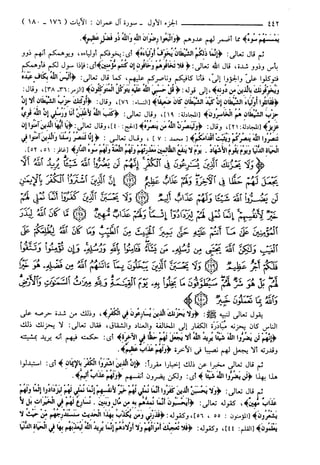 ٤٤٢ الجزء الأول - سورة آل عمران : الآيات (١٧٦ - ١٨٠)
يمسسهم سوء﴾ مما أضمر لهم عدوهم ﴿واتبعوا رضوان الله والله ذو فضل عظيم﴾.
ثم قال تعالى: ﴿إنما ذلكم الشيطان يخوف أولياءه﴾ أي: يخوفكم أولياءه، ويوهمكم أنهم ذوو
بأس وذوو شدة، قال الله تعالى: ﴿فلا تخافوهم وخافون إن كنتم مؤمنين﴾ أي: فإذا سول لكم وأوهمكم
فتوكلوا علي والجؤوا إلي، فأنا كافيكم وناصركم عليهم، كما قال تعالى: ﴿أليس الله بكاف عبده
ويخوفونك بالذين من دونه﴾ إلى قوله: ﴿قل حسبي الله عليه يتوكل المتوكلون﴾ [الزمر: ٣٦، ٣٨]، وقال:
﴿فقاتلوا أولياء الشيطان إن كيد الشيطان كان ضعيفا﴾ [النساء: ٧٦]، وقال: ﴿أولئك حزب الشيطان ألا إن
حزب الشيطان هم الخاسرون﴾ [المجادلة: ١٩]، وقال تعالى: ﴿كتب الله لأغلبن أنا ورسلي إن الله قوي
عزيز﴾ [المجادلة: ٢١]، وقال: ﴿ولينصرن الله من ينصره﴾ [الحج: ٤٠]، وقال تعالى: ﴿يا أيها الذين آمنوا إن
تنصروا الله ينصركم ويثبت أقدامكم﴾ [محمد: ٧]، وقال تعالى: ﴿إنا لننصر رسلنا والذين آمنوا في
الحياة الدنيا ويوم يقوم الأشهاد . يوم لا ينفع الظالمين معذرتهم ولهم اللعنة ولهم سوء الدار﴾ [غافر: ٥١، ٥٢].
﴿ولا يحزنك الذين يسارعون في الكفر إنهم لن يضروا الله شيئا يريد الله ألا
يجعل لهم حظا في الآخرة ولهم عذاب عظيم ﴿١٧٦﴾ إن الذين اشتروا الكفر بالإيمان
لن يضروا الله شيئا ولهم عذاب أليم ﴿١٧٧﴾ ولا يحسبن الذين كفروا أنما نملي لهم
خير لأنفسهم إنما نملي لهم ليزدادوا إثما ولهم عذاب مهين ﴿١٧٨﴾ ما كان الله ليذر
المؤمنين على ما أنتم عليه حتى يميز الخبيث من الطيب وما كان الله ليطلعكم على
الغيب ولكن الله يجتبي من رسله من يشاء فآمنوا بالله ورسله وإن تؤمنوا وتتقوا
فلكم أجر عظيم ﴿١٧٩﴾ ولا يحسبن الذين يبخلون بما آتاهم الله من فضله هو خيرا
لهم بل هو شر لهم سيطوقون ما بخلوا به يوم القيامة ولله ميراث السماوات والأرض
والله بما تعملون خبير ﴿١٨٠﴾﴾
يقول تعالى لنبيه ﷺ: ﴿ولا يحزنك الذين يسارعون في الكفر﴾، وذلك من شدة حرصه على
الناس كان يحزنه مبادرة الكفار إلى المخالفة والعناد والشقاق، فقال تعالى: لا يحزنك ذلك
﴿إنهم لن يضروا الله شيئا يريد الله ألا يجعل لهم حظا في الآخرة﴾ أي: حكمته فيهم أنه يريد بمشيئته
وقدرته ألا يجعل لهم نصيبا في الآخرة ﴿ولهم عذاب عظيم﴾.
ثم قال تعالى مخبرا عن ذلك إخبارا مقررا: ﴿إن الذين اشتروا الكفر بالإيمان﴾ أي: استبدلوا
هذا بهذا ﴿لن يضروا الله شيئا﴾ أي: ولكن يضرون أنفسهم ﴿ولهم عذاب أليم﴾.
ثم قال تعالى: ﴿ولا يحسبن الذين كفروا أنما نملي لهم خير لأنفسهم إنما نملي لهم ليزدادوا إثما ولهم
عذاب مهين﴾، كقوله تعالى: ﴿أيحسبون أنما نمدهم به من مال وبنين . نسارع لهم في الخيرات بل لا
يشعرون﴾ [المؤمنون: ٥٥، ٥٦]، وكقوله: ﴿فذرني ومن يكذب بهذا الحديث سنستدرجهم من حيث لا
يعلمون﴾ [القلم: ٤٤]، وكقوله: ﴿فلا تعجبك أموالهم ولا أولادهم إنما يريد الله ليعذبهم بها في الحياة الدنيا